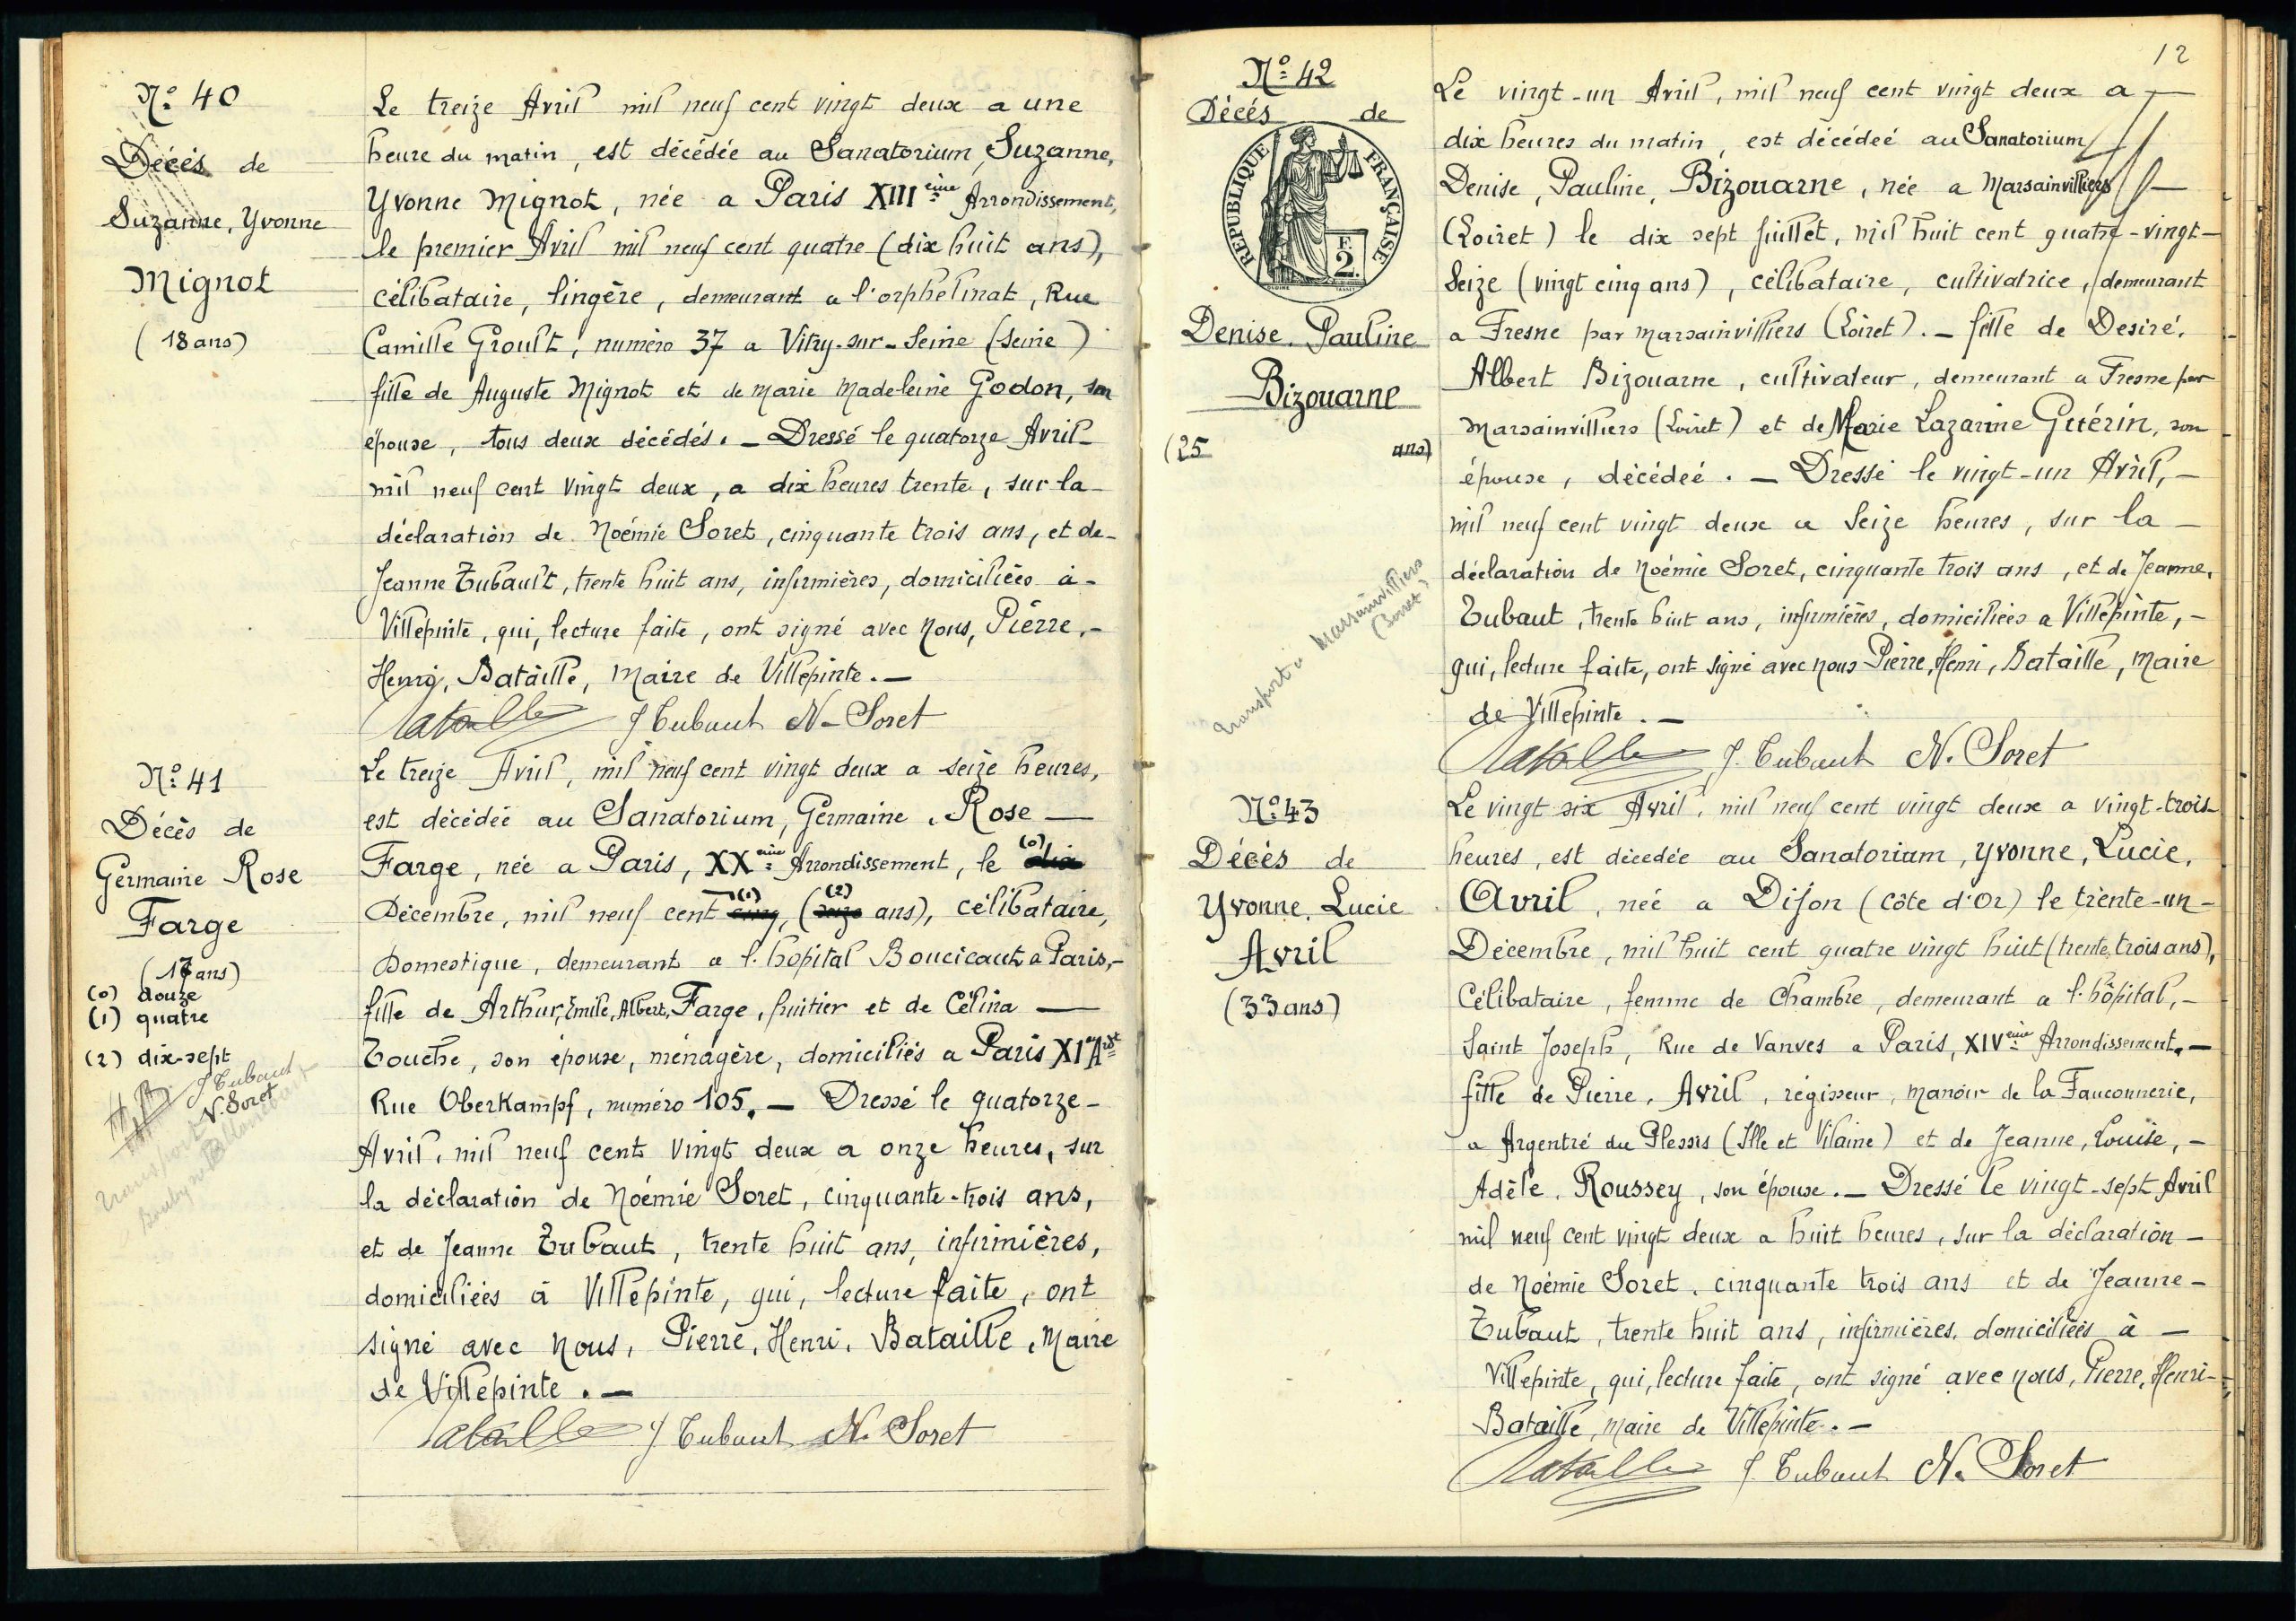 Nº 40
Décès de
Suzanne, Yvonne
Mignot
(18 ans)
Le treize Avril mil neuf cent vingt deux a une
heure du matin, est décédée au Sanatorium, Suzanne,
Yvonne Mignot, née a Paris XIIIème Arrondissement,
le premier Avril mil neuf cent quatre (dix huit ans),
célibataire, lingère, demeurant a l'orphelinat, Rue
Camille Groult, numéro 37 a Vitry-sur-Seine (Seine)
fille de Auguste Mignot et de Marie Madeleine Godon, son
épouse, tous deux décédés. — Dressé le quatorze Avril
mil neuf cent vingt deux, a dix heures trente, sur la
déclaration de Noémie Soret, cinquante trois ans, et de
Jeanne Tubault, trente huit ans, infirmières, domiciliées à
Villepinte, qui, lecture faite, ont signé avec Nous, Pierre,
Henri, Bataille, Maire de Villepinte. —
Bataille J Tubaut N. Soret
Nº 41
Décès de
Germaine Rose
Farge
(17 ans)
(0) douze
(1) quatre
(2) dix-sept
J Tubaut
N. Soret
Transport
Le treize Avril, mil neuf cent vingt deux a seize heures,
est décédée au Sanatorium, Germaine, Rose —
Farge, née a Paris, XXème Arrondissement, le (0) dix
Décembre, mil neuf cent (1) cinq, ((2) seize ans), célibataire,
Domestique, demeurant a l'hôpital Boucicaut a Paris, —
fille de Arthur, Emile, Albert, Farge, fruitier et de Célina —
Touche, son épouse, ménagère, domiciliés a Paris XIe Arrt
Rue Oberkampf, numéro 105. — Dressé le quatorze
Avril, mil neuf cent vingt deux a onze heures, sur
la déclaration de Noémie Soret, cinquante-trois ans,
et de Jeanne Tubaut, trente huit ans, infirmières,
domiciliées à Villepinte, qui, lecture faite, ont
signé avec Nous, Pierre, Henri, Bataille, Maire
de Villepinte. —
Bataille J Tubaut N. Soret
12
Nº 42
Décés de
REPUBLIQUE FRANÇAISE
F.
2.
Denise, Pauline
Bizouarne
(25 ans)
Transport a Marsainvilliers
Le vingt-un Avril, mil neuf cent vingt deux a —
dix heures du matin, est décédeé au Sanatorium
Denise, Pauline, Bizouarne, née a Marsainvilliers —
(Loiret) le dix sept Juillet, mil huit cent quatre-vingt-
Seize (vingt cinq ans), célibataire, cultivatrice, demeurant
a Fresne par Marsainvilliers (Loiret). — fille de Desiré,
Albert Bizouarne, cultivateur, demeurant a Fresne par
Marsainvilliers (Loiret) et de Marie Lazarine Guérin, son
épouse, décédeé. — Dressé le vingt-un Avril, —
mil neuf cent vingt deux a Seize heures, sur la —
déclaration de Noémie Soret, cinquante trois ans, et de Jeanne,
Tubaut, trente huit ans, infirmières, domiciliées a Villepinte, —
qui, lecture faite, ont signé avec nous Pierre, Henri, Bataille, Maire
de Villepinte. —
Bataille J. Tubaut N. Soret
Nº 43
Décés de
Yvonne, Lucie
Avril
(33 ans)
Le vingt six Avril, mil neuf cent vingt deux a vingt-trois
heures, est décedée au Sanatorium, Yvonne, Lucie,
Avril, neé a Dijon (Côte d'Or) le trente-un
Décembre, mil huit cent quatre vingt huit (trente trois ans),
Célibataire, femme de Chambre, demeurant a l'hôpital, —
Saint Joseph, Rue de Vanves a Paris, XIVème Arrondissement. —
fille de Pierre, Avril, régisseur, Manoir de la Fauconnerie,
a Argentré du Plessis (Ille et Vilaine) et de Jeanne, Louise, —
Adèle, Roussey, son épouse. — Dressé le vingt-sept Avril
mil neuf cent vingt deux a huit heures, sur la déclaration —
de Noémie Soret, cinquante trois ans et de Jeanne —
Tubaut, trente huit ans, infirmières, domiciliées à —
Villepinte, qui, lecture faite, ont signé avec nous, Pierre, Henri-
Bataille, Maire de Villepinte. —
Bataille J. Tubaut N. Soret